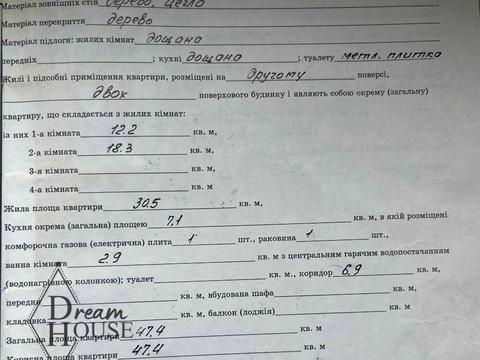 Матеріал зовнішніх стін дерево, цегла
Матеріал перекриття дерево
Матеріал підлоги: жилих кімнат дощана
передніх ; кухні дощана ; туалету метл. плитка
Жилі і підсобні приміщення квартири, розміщені на другому поверсі,
двох поверхового будинку і являють собою окрему (загальну)
квартиру, що складається з жилих кімнат:
із них 1-а кімната 12.2 кв. м,
2-а кімната 18.3 кв. м,
3-я кімната кв. м,
4-а кімната кв. м
Жила площа квартири 30.5 кв. м,
Кухня окрема (загальна) площею 7,1 кв. м, в якій розміщені
комфорочна газова (електрична) плита 1 шт., раковина 1 шт.,
ванна кімната 2.9 кв. м з центральним гарячим водопостачанням
(водонагрівною колонкою); туалет кв. м., коридор 6,9 кв. м,
передня кв. м, вбудована шафа кв. м,
кладовка кв. м, балкон (лоджія) кв. м.
Загальна площа квартири 47.4 кв. м
Корисна площа квартири 47,4 кв. м
Dream
HOUSE